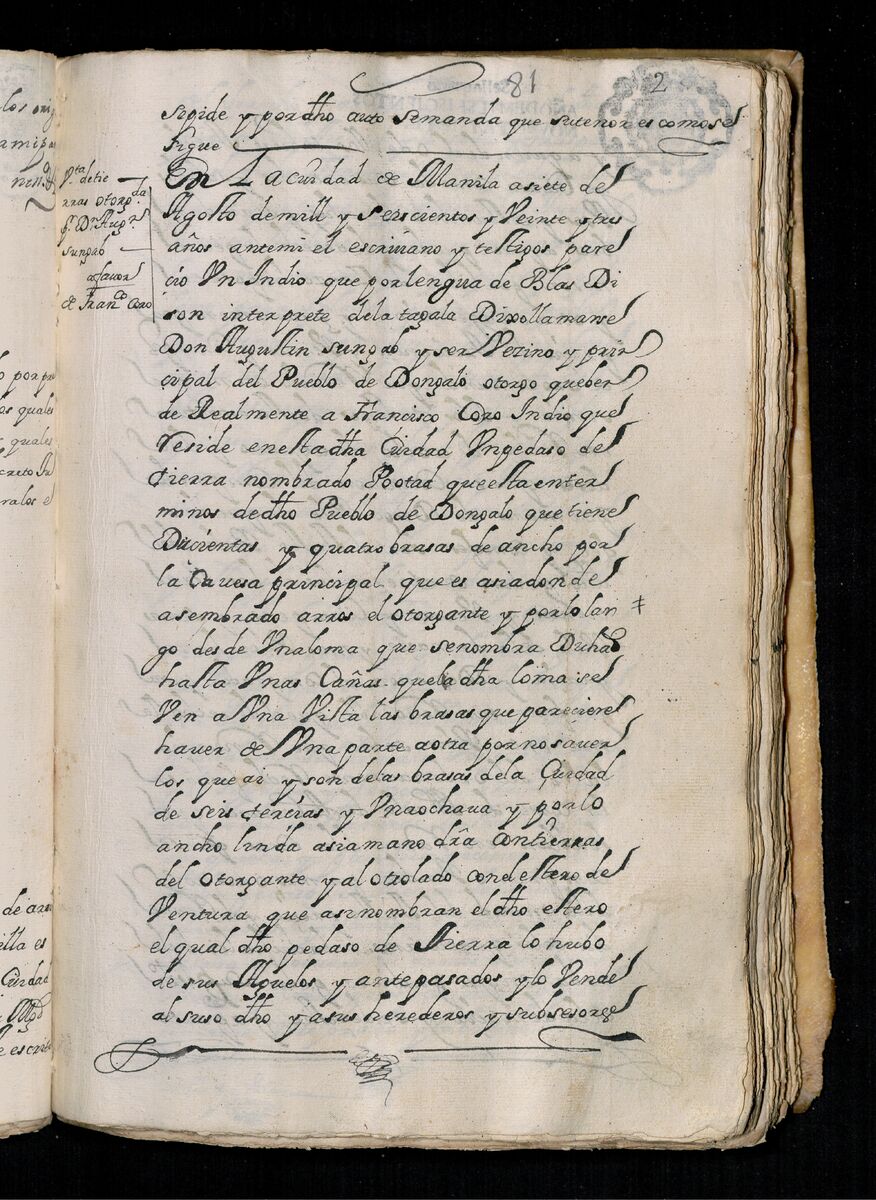 81
2
sepide y por dho auto semanda que sutenor es como se
sigue
V.ta de tie
rras otorg.da
p.r D.n Aug.n
sungab
a favor
de Fran.co Coro
En La ciudad de Manila a siete de
Agosto demill y seiscientos y Veinte y tres
años antemi el escriuano y testigos pare
cio Un Indio que por lengua de Blas Di
son interprete dela tagala Dixo llamarse
Don Augustin sungab y ser Vezino y prin
cipal del Pueblo de Dongalo otorgo que ben
de Realmente a Francisco Coro Indio que
reside enesta dha Ciudad Un pedaso de
tierra nombrado Pootad que esta enter
minos de dho Pueblo de Dongalo que tiene
Ducientas y quatro brasas de ancho por
la Cauesa principal que es asia donde
a sembrado arros el otorgante y por lo lar
go desde Una loma que senombra Duhab
hasta Unas Cañas quela dha loma se
Ven a Una Vista las brasas que pareciere
hauer de Una parte a otra por no sauer
los que ai y son delas brasas dela Ciudad
de seis tercias y Una ochaua y por lo
ancho linda asia mano dra. Con tierras
del otorgante y al otro lado con el estero de
Ventura que asi nombran el dho estero
el qual dho pedaso de tierra lo hubo
de sus Aguelos y antepasados y lo Vende
al suso dho y a sus herederos y subsesores
los orig
nin.g
o por pr
los quales
quales
creto In
rales e
de aro
illa es
Ciudad
e escri